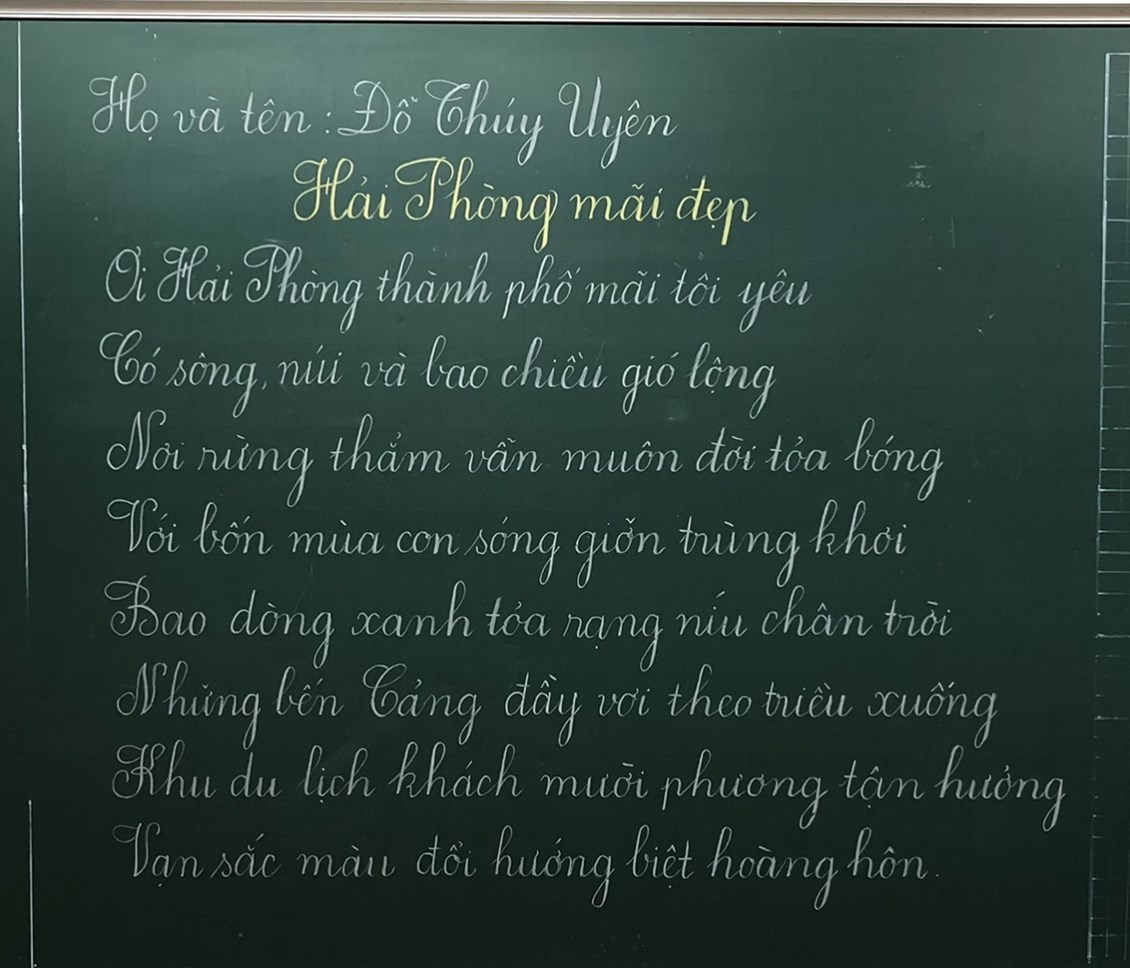 Họ và tên: Đỗ Thúy Uyên
Hải Phòng mãi đẹp
Ơi Hải Phòng thành phố mãi tôi yêu
Có sông, núi và bao chiều gió lộng
Nơi rừng thắm vẫn muôn đời tỏa bóng
Với bốn mùa con sóng giỡn trùng khơi
Bao dòng xanh tỏa rạng níu chân trời
Những bến Cảng đầy vơi theo triều xuống
Khu du lịch khách mười phương tận hưởng
Vạn sắc màu đổi hướng biệt hoàng hôn.